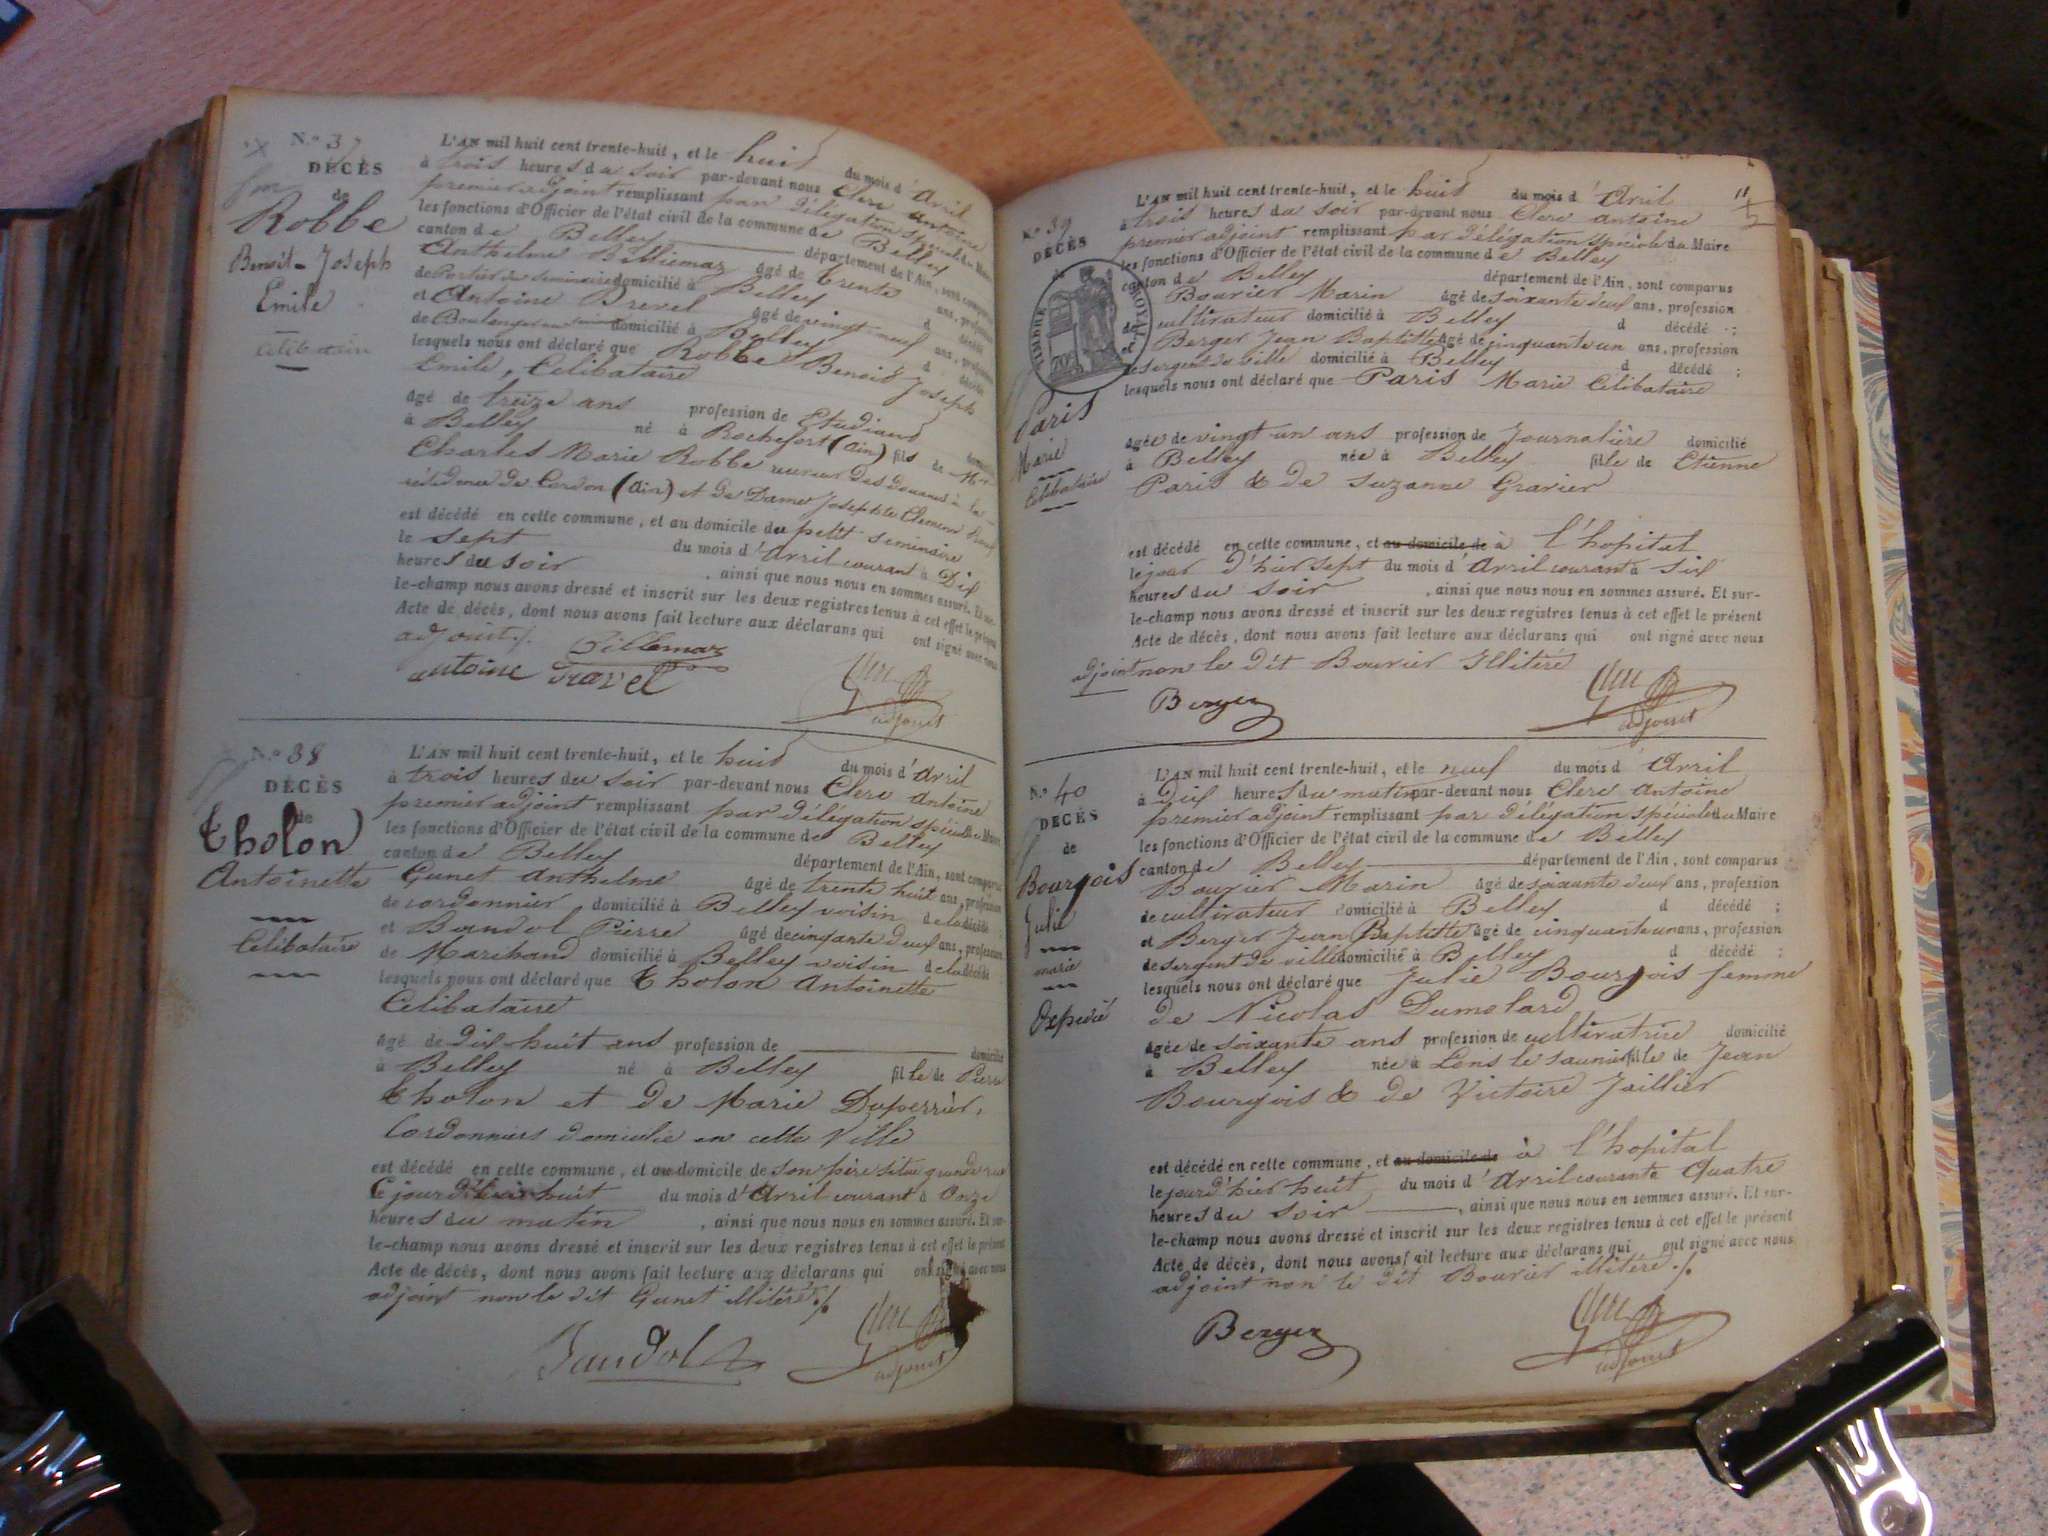 N.° 37
DÉCÈS
de
Robbe
Benoit-Joseph
Emile
Célibataire
L'AN mil huit cent trente-huit, et le huit du mois d'Avril
à trois heures du soir par-devant nous Clerc Antoine
premier adjoint remplissant par délégation spéciale du Maire
les fonctions d'Officier de l'état civil de la commune de Belley
canton de Belley département de l'Ain, sont comparus
Anthelme Billiemaz âgé de trente ans, profession
de Portier du seminaire domicilié à Belley d décédé
et Antoine Brevel âgé de vingt-neuf ans, profession
de Boulanger au domicilié à Belley d décédé
lesquels nous ont déclaré que Robbe Benoit Joseph
Emile, Célibataire
âgé de treize ans profession de Etudiant domicilié
à Belley né à Rochefort (Ain) fils de Mr
Charles Marie Robbe receveur des douanes à la
résidence de Cordon (Ain) et de Dame Josephte
est décédé en cette commune, et au domicile du petit seminaire
le sept du mois d'Avril courant à Dix
heures du soir, ainsi que nous nous en sommes assuré. Et sur-
le-champ nous avons dressé et inscrit sur les deux registres tenus à cet effet le présent
Acte de décès, dont nous avons fait lecture aux déclarans qui ont signé avec nous
adjoint ./.
Billemaz
antoine Travel
Clerc
adjoint
N.° 38
DÉCÈS
de
Tholon
Antoinette
Célibataire
L'AN mil huit cent trente-huit, et le huit du mois d'Avril
à trois heures du soir par-devant nous Clerc Antoine
premier adjoint remplissant par délégation spéciale du Maire
les fonctions d'Officier de l'état civil de la commune de Belley
canton de Belley département de l'Ain, sont comparus
Gunet Anthelme âgé de trente huit ans, profession
de cordonnier domicilié à Belley voisin de la décédé ;
et Bandol Pierre âgé de cinquante deux ans, profession
de Marchand domicilié à Belley voisin de la décédé
lesquels nous ont déclaré que Tholon Antoinette
Célibataire
âgé de Dix-huit ans profession de domicilié
à Belley né à Belley fille de Pierre
Tholon et de Marie Duperrier,
Cordonniers domicilié en cette Ville
est décédé en cette commune, et au domicile de son père situé grande rue
le jour d'hier huit du mois d'Avril courant à Onze
heures du matin, ainsi que nous nous en sommes assuré. Et sur-
le-champ nous avons dressé et inscrit sur les deux registres tenus à cet effet le présent
Acte de décès, dont nous avons fait lecture aux déclarans qui ont signé avec nous
adjoint non le dit Gunet illitéré ./.
Bandol
Clerc
adjoint
N.° 39
DÉCÈS
de
TIMBRE ROYAL
70
Paris
Marie
Célibataire
L'AN mil huit cent trente-huit, et le huit du mois d'Avril
à trois heures du soir par-devant nous Clerc Antoine
premier adjoint remplissant par délégation spéciale du Maire
les fonctions d'Officier de l'état civil de la commune de Belley
canton de Belley département de l'Ain, sont comparus
Bouvier Marin âgé de soixante deux ans, profession
de cultivateur domicilié à Belley d décédé ;
et Berger Jean Baptiste âgé de cinquante un ans, profession
de sergent de ville domicilié à Belley d décédé ;
lesquels nous ont déclaré que Paris Marie Célibataire
âgée de vingt un ans profession de Journalière domicilié
à Belley née à Belley fille de Etienne
Paris & de Suzanne Gravier
est décédé en cette commune, et au domicile de à l'hopital
le jour d'hier sept du mois d'Avril courant à six
heures du soir, ainsi que nous nous en sommes assuré. Et sur-
le-champ nous avons dressé et inscrit sur les deux registres tenus à cet effet le présent
Acte de décès, dont nous avons fait lecture aux déclarans qui ont signé avec nous
adjoint non le dit Bouvier Illitéré
Berger
Clerc
adjoint
N.° 40
DÉCÈS
de
Bourgois
Julie
marié
Expedié
L'AN mil huit cent trente-huit, et le neuf du mois d'Avril
à Dix heures du matin par-devant nous Clerc Antoine
premier adjoint remplissant par délégation spéciale du Maire
les fonctions d'Officier de l'état civil de la commune de Belley
canton de Belley département de l'Ain, sont comparus
Bouvier Marin âgé de soixante deux ans, profession
de cultivateur domicilié à Belley d décédé ;
et Berger Jean Baptiste âgé de cinquante un ans, profession
de sergent de ville domicilié à Belley d décédé ;
lesquels nous ont déclaré que Julie Bourgois femme
de Nicolas Dumolard
âgée de soixante ans profession de cultivatrice domicilié
à Belley née à Lons le saunier fille de Jean
Bourgois & de Victoire Jaillier
est décédé en cette commune, et au domicile de à l'hopital
le jour d'hier huit du mois d'Avril courant à Quatre
heures du soir, ainsi que nous nous en sommes assuré. Et sur-
le-champ nous avons dressé et inscrit sur les deux registres tenus à cet effet le présent
Acte de décès, dont nous avons fait lecture aux déclarans qui ont signé avec nous
adjoint non le dit Bouvier illitéré ./.
Berger
Clerc
adjoint